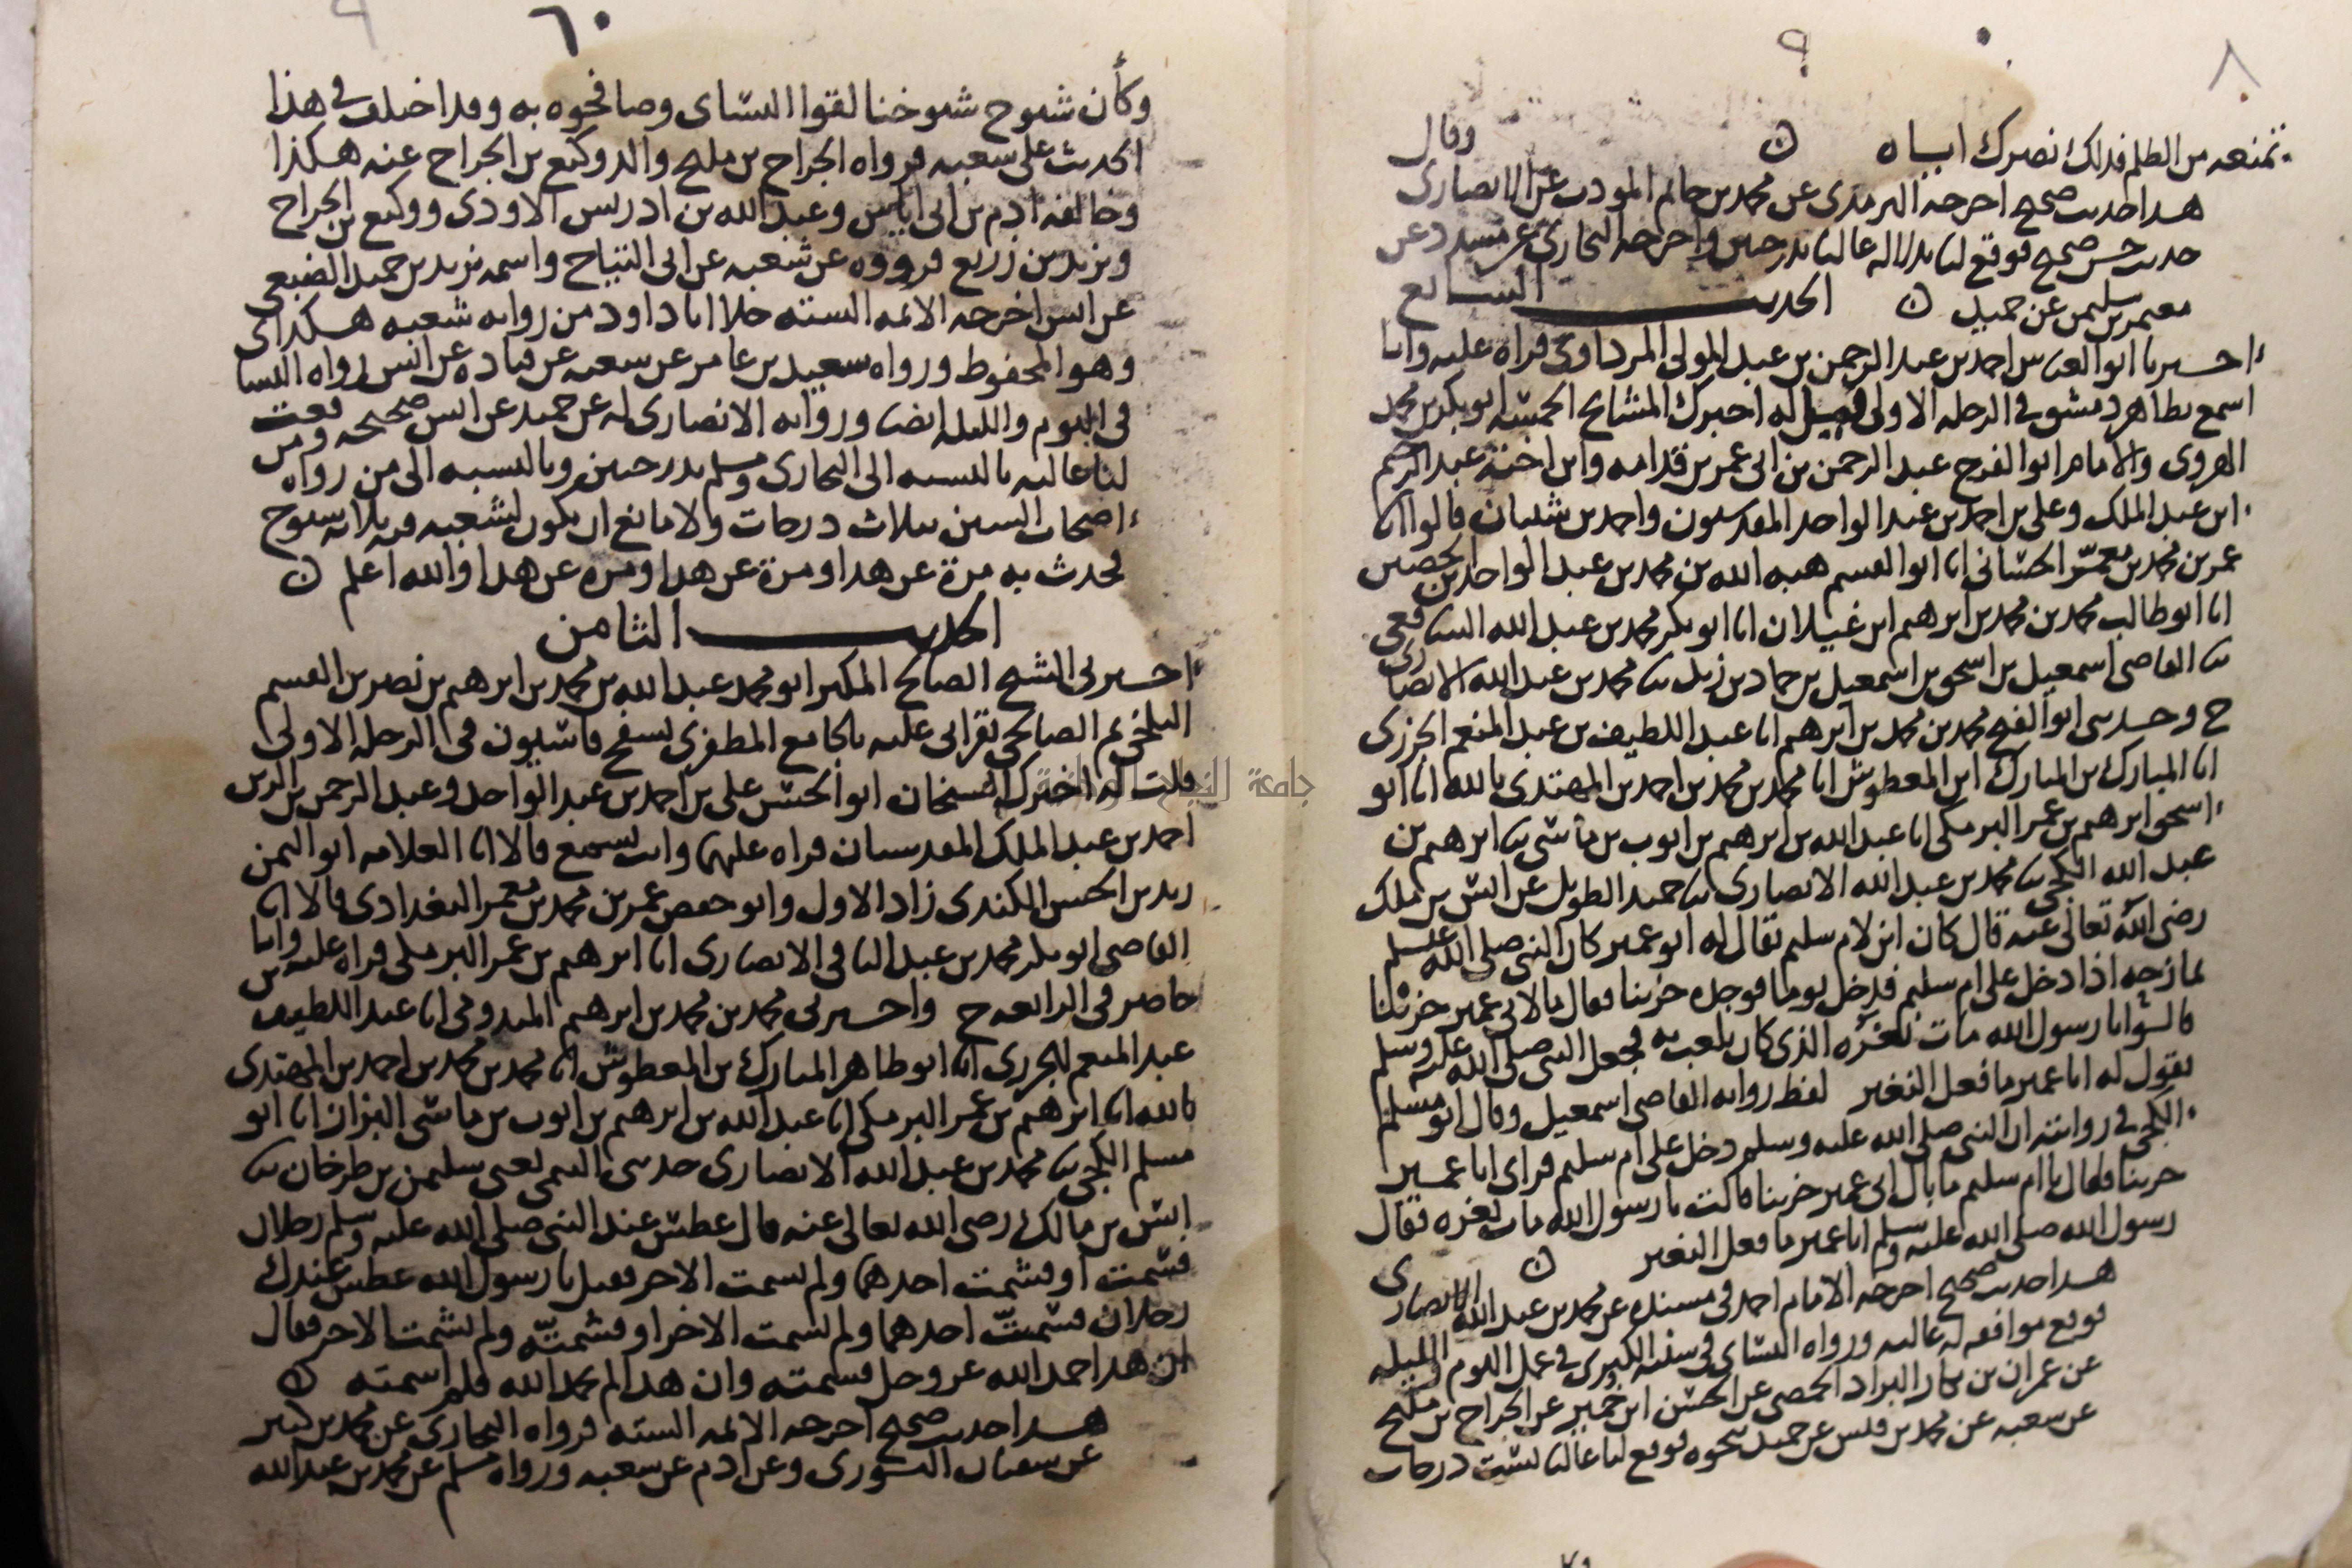 ٨
٩
تمنعه من الظلم فذلك نصرك اياه ن وقال
هذا حديث صحيح اخرجه الترمذى عن محمد بن حاتم المودب عن الانصارى
حديث حسن صحيح فوقع لنا بدلا له عاليا بدرجتين واخرجه البخارى عن مسدد عن
معتمر بن سليمن عن حميد ن الحديث السابع
اخبرنا ابو العباس احمد بن عبد الرحمن بن عبد المولى المرداوى قراه عليه وانا
اسمع بظاهر دمشق فى الرحله الاولى قيل له اخبرك المشايخ الخمسه ابو بكر بن محمد
الهروى والامام ابو الفرج عبد الرحمن بن ابى عمر بن قدامه وابن اخته عبد الرحيم
ابن عبد الملك وعلى بن احمد بن عبد الواحد المقدسيون واحمد بن شيبان قالوا انا
عمر بن محمد بن معمر الحسانى انا ابو القسم هبه الله بن محمد بن عبد الواحد بن الحصين
انا ابو طالب محمد بن محمد بن ابرهيم ابن غيلان انا ابو بكر محمد بن عبد الله الشافعى
ثنا القاضى اسمعيل بن اسحق بن اسمعيل بن حماد بن زيد ثنا محمد بن عبد الله الانصارى
ح وحدثنى ابو الفتح محمد بن محمد بن ابرهيم انا عبد اللطيف بن عبد المنعم الجزرى
انا المبارك بن المبارك ابن المعطوش انا محمد بن محمد بن احمد بن المهتدى بالله انا ابو
اسحق ابرهيم بن عمر البرمكى انا عبد الله بن ابرهيم بن ايوب بن ماسى ثنا ابرهيم بن
عبد الله الكجى ثنا محمد بن عبد الله الانصارى ثنا حميد الطويل عن انس بن ملك
رضى الله تعالى عنه قال كان ابن لام سليم يقال له ابو عمير كان النبى صلى الله عليه وسلم
يمازحه اذا دخل على ام سليم فدخل يوما فوجده حزينا فقال ما لابى عمير حزينا
قالوا يا رسول الله مات نغره الذى كان يلعب به فجعل النبى صلى الله عليه وسلم
يقول له ابا عمير ما فعل النغير لفظ روايه القاضى اسمعيل وقال ابو مسلم
الكجى فى روايته ان النبى صلى الله عليه وسلم دخل على ام سليم فراى ابا عمير
حزينا فقال يا ام سليم ما بال ابى عمير حزينا قالت يا رسول الله مات نغره فقال
رسول الله صلى الله عليه وسلم ابا عمير ما فعل النغير ن
هذا حديث صحيح اخرجه الامام احمد فى مسنده عن محمد بن عبد الله الانصارى
فوقع موافقه له عاليه ورواه النساى فى سننه الكبرى فى عمل اليوم والليله
عن عمران بن بكار البراد الحمصى عن الحسن ابن خمير عن الجراح بن مليح
عن شعبه عن محمد بن قيس عن حميد نحوه فوقع لنا عاليا لست درجات
٦٠
وكأن شيوح شيوخنا لقوا النساى وصافحوه به وقد اختلف فى هذا
الحديث على شعبه فرواه الجراح بن مليح والد وكيع بن الجراح عنه هكذا
وخالفه ادم بن ابى اياس وعبد الله بن ادريس الاودى ووكيع بن الجراح
ويزيد بن زريع فرووه عن شعبه عن ابى التياح واسمه يزيد بن حميد الضبعى
عن انس اخرجه الائمه السته خلا ابا داود من روايه شعبه هكذا
وهو المحفوظ ورواه سعيد بن عامر عن شعبه عن قتاده عن انس رواه النساى
فى اليوم والليله ايضا وروايه الانصارى له عن حميد عن انس صحيحه وقعت
لنا عاليه بالنسبه الى البخارى ومسلم بدرجتين وبالنسبه الى من رواه من
اصحاب السنن بثلاث درجات ولا مانع ان يكون لشعبه فيه ثلاثه شيوح
يحدث به مرة عن هذا ومرة عن هذا ومره عن هذا والله اعلم ن
الحديث الثامن
اخبرنى الشيخ الصالح المكثر ابو محمد عبد الله بن محمد بن ابرهيم بن نصر بن القسم
البلخى ثم الصالحى بقرانى عليه بالجامع المظفرى بسفح قاسيون فى الرحله الاولى
قلت له اخبرك الشيخان ابو الحسن على بن احمد بن عبد الواحد وعبد الرحمن بن الزين
احمد بن عبد الملك المقدسيان قراه عليهما وانت تسمع قالا انا العلامه ابو اليمن
زيد بن الحسن الكندى زاد الاول وابو حفص عمر بن محمد بن معمر البغدادى قالا انا
القاضى ابو بكر محمد بن عبد الباقى الانصارى انا ابرهيم بن عمر البرمكى قراه عليه وانا
حاضر فى الرابعه ح واخبرنى محمد بن محمد بن ابرهيم الميدومى انا عبد اللطيف بن
عبد المنعم الجزرى انا ابو طاهر المبارك بن المعطوش انا محمد بن محمد بن احمد بن المهتدى
بالله انا ابرهيم بن عمر البرمكى انا عبد الله بن ابرهيم بن ايوب بن ماسى البزاز انا ابو
مسلم الكجى ثنا محمد بن عبد الله الانصارى حدثنى التيمى يعنى سليمن بن طرخان ثنا
انس بن مالك رضى الله تعالى عنه قال عطش عند النبى صلى الله عليه وسلم رجلان
فشمت او فشمت احدهما ولم يشمت الاخر فقيل يا رسول الله عطس عندك
رجلان فشمتّ احدهما ولم تشمت الاخر او فشمتّه ولم تشمت الاخر فقال
ان هذا حمد الله عز وجل فشمته وان هذا لم يحمد الله فلم اشمته ن
هذا حديث صحيح اخرجه الائمه السته فرواه البخارى عن محمد بن كثير
عن سفيان الثورى وعن ادم عن شعبه ورواه مسلم عن محمد بن عبد الله
جامعة النجاح الوطنية